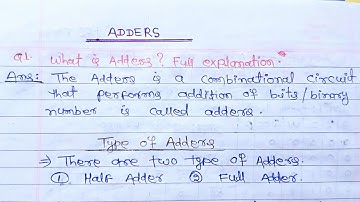 ADDERS
Q1. What is Adders? Full explanation.
Ans: The Adders is a combinational circuit
that performs addition of bits/binary
number is called adders.
Type of Adders
⇒ There are two type of Adders.
① Half Adder ② Full Adder.